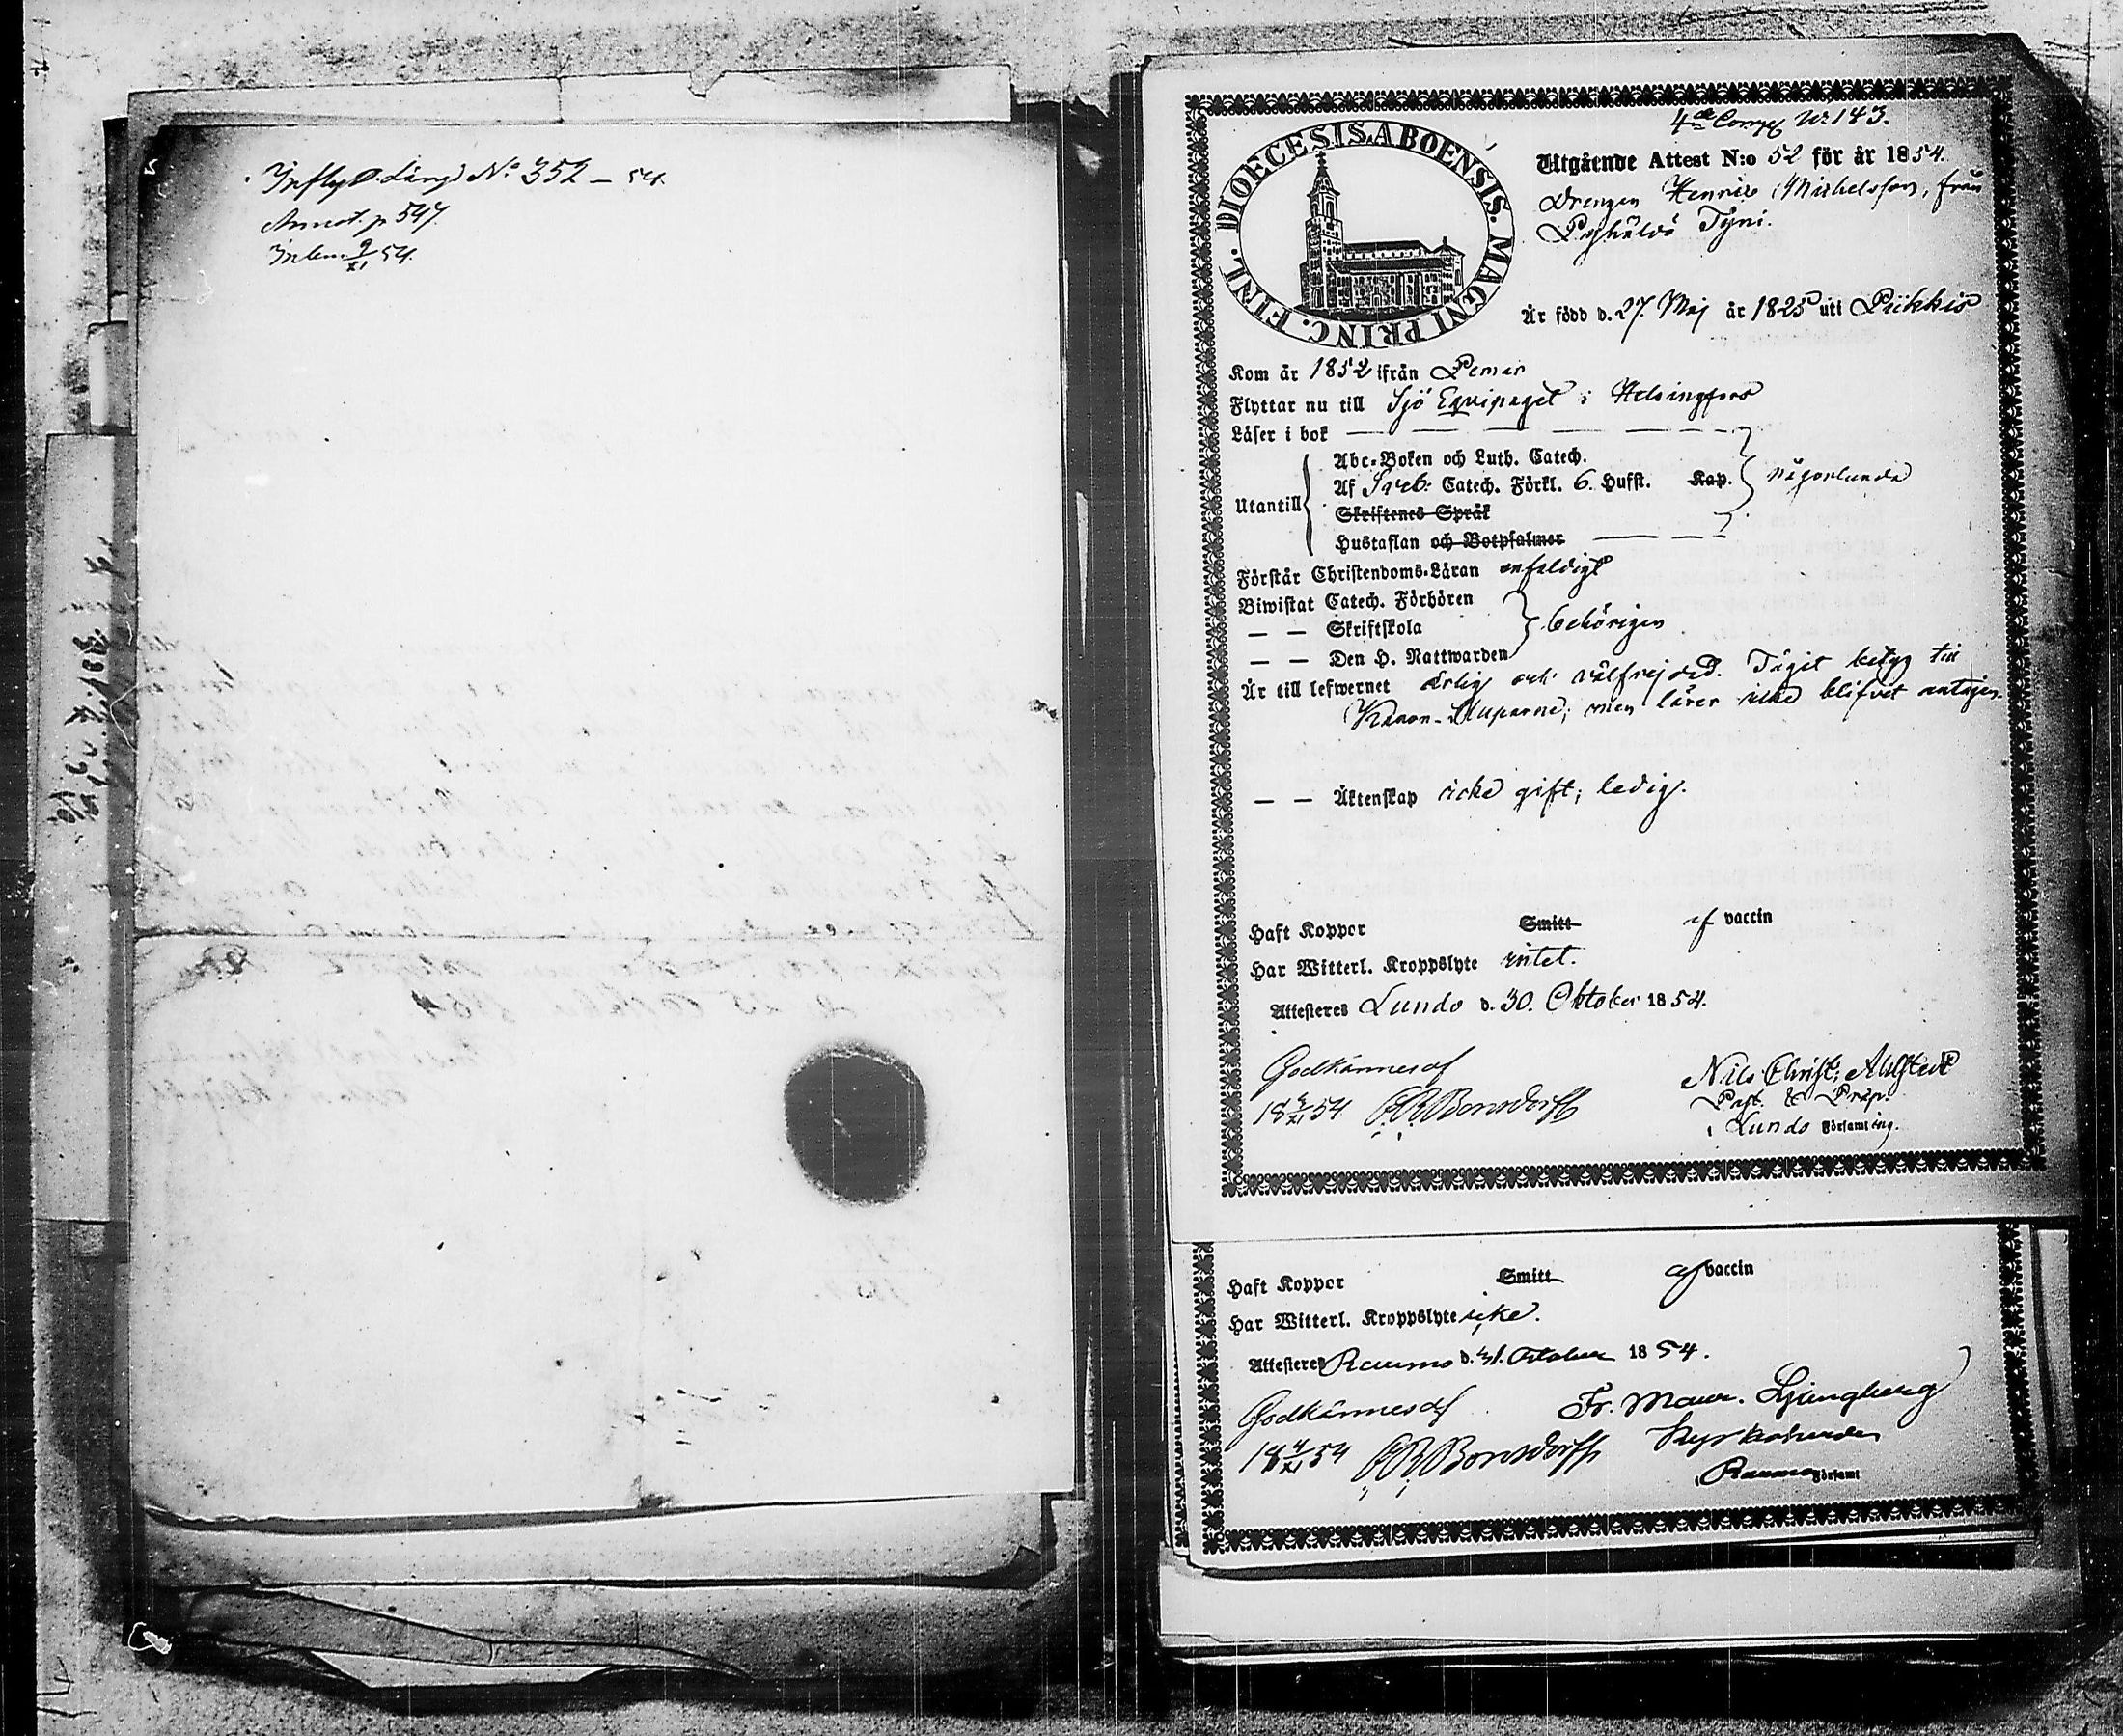 Inflyttn. Längd No 352 – 54.
Annot. p 547.
Inlem. 9/XI 54.
4de Comp. No 143.
DIOECESIS ABOENSIS. MAGNI PRINC. FINL.
Utgående Attest N:o 52 för år 1854.
Drengen Henric Michelsson, från
Tyni.
Är född d. 27. Maj år 1825 uti Piikkis
Kom år 1852 ifrån Pemar
Flyttar nu till Sjö Equipaget i Helsingfors
Läser i bok — — — — — —
Abc-Boken och Luth. Catech.
Utantill Af Sveb: Catech. Förkl. 6. Hufst. Kap. någorlunda
Skriftenes Språk
Hustaflan och Botpsalmer — — — —
Förstår Christendoms-Läran enfaldigt
Biwistat Catech. Förhören
— — Skriftskola behörigen
— — Den H. Nattwarden
Är till lefwernet ärlig och välfrejdad. Tagit betyg till
Kanon-Sluparne; men lärer icke blifvit antagen.
— — Äktenskap icke gift; ledig.
Haft Koppor Smitt af vaccin
Har Witterl. Kroppslyte intet.
Attesteres Lundo d. 30. Oktober 1854.
Godkännes af
18 4/XI 54 Bonsdorff
Nils Christ: Ahlstedt
Past. & Præp.
i Lundo Församling.
Haft Koppor Smitt af vaccin
Har Witterl. Kroppslyte icke.
Attesteres Raumo d. 31. October 1854.
Godkännes af
18 4/XI 54 Bonsdorff
Fr. Maur. Ljungberg
Kyrkoherde
i Raumo Församl